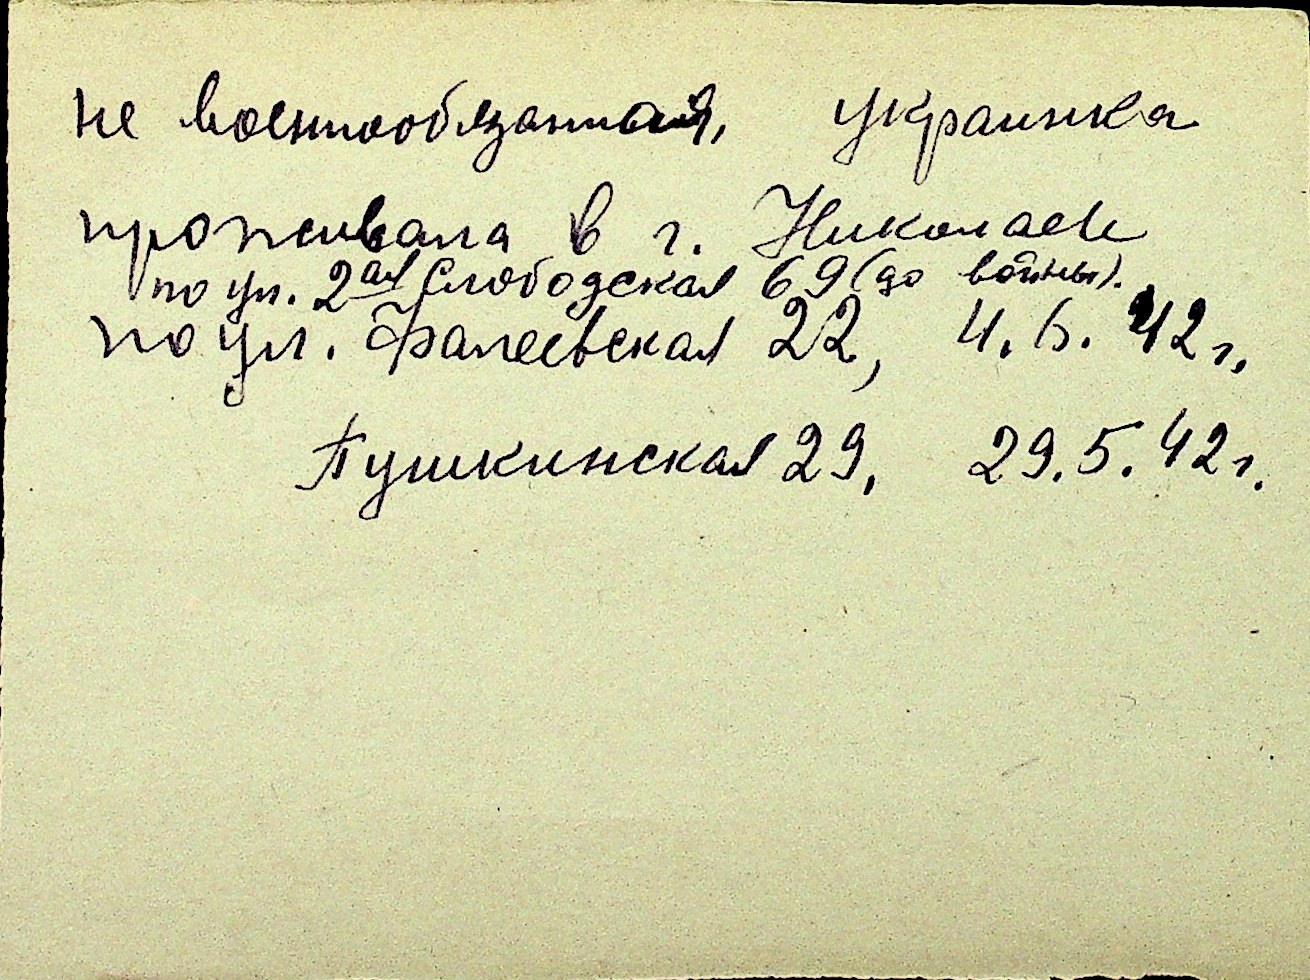 не военнообязанная, украинка
проживала в г. Николаеве
по ул. 2ая Слободская 69 (до войны).
по ул. Фалеевская 22, 4. 6. 42 г.
Пушкинская 29, 29. 5. 42 г.